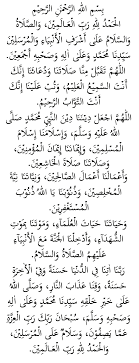 بِسْمِ اللهِ الرَّحْمٰنِ الرَّحِيْمِ
الْحَمْدُ لِلّٰهِ رَبِّ الْعَالَمِيْنَ، وَالصَّلَاةُ
وَالسَّلَامُ عَلَى أَشْرَفِ الْأَنْبِيَاءِ وَالْمُرْسَلِيْنَ
سَيِّدِنَا مُحَمَّدٍ وَعَلَى آلِهِ وَصَحْبِهِ أَجْمَعِيْنَ.
اللّٰهُمَّ تَقَبَّلْ مِنَّا صَلَاتَنَا وَدُعَاءَنَا إِنَّكَ
أَنْتَ السَّمِيْعُ الْعَلِيْمُ، وَتُبْ عَلَيْنَا إِنَّكَ
أَنْتَ التَّوَّابُ الرَّحِيْمُ.
اللّٰهُمَّ اجْعَلْ دِيْنَنَا دِيْنَ النَّبِيِّ مُحَمَّدٍ صَلَّى
اللهُ عَلَيْهِ وَسَلَّمَ، وَإِسْلَامَنَا إِسْلَامَ
الْمُسْلِمِيْنَ، وَإِيْمَانَنَا إِيْمَانَ الْمُؤْمِنِيْنَ،
وَصَلَاتَنَا صَلَاةَ الْخَاشِعِيْنَ.
وَأَعْمَالَنَا أَعْمَالَ الصَّالِحِيْنَ، وَنِيَّاتَنَا نِيَّةَ
الْمُخْلِصِيْنَ، وَذُنُوْبَنَا يَا اللهُ ذُنُوْبَ
الْمُسْتَغْفِرِيْنَ.
وَحَيَاتَنَا حَيَاتَ الْعُلَمَاءِ، وَمَوْتَنَا مَوْتَ
الشُّهَدَاءِ، وَأَدْخِلْنَا الْجَنَّةَ مَعَ الْأَنْبِيَاءِ
عَلَيْهِمُ الصَّلَاةُ وَالسَّلَامُ.
رَبَّنَا آتِنَا فِي الدُّنْيَا حَسَنَةً وَفِي الْآخِرَةِ
حَسَنَةً، وَقِنَا عَذَابَ النَّارِ، وَصَلَّى اللهُ
عَلَى خَيْرِ خَلْقِهِ سَيِّدِنَا مُحَمَّدٍ وَعَلَى آلِهِ
وَصَحْبِهِ وَسَلَّمَ، سُبْحَانَ رَبِّكَ رَبِّ الْعِزَّةِ
عَمَّا يَصِفُوْنَ، وَسَلَامٌ عَلَى الْمُرْسَلِيْنَ،
وَالْحَمْدُ لِلّٰهِ رَبِّ الْعَالَمِيْنَ.